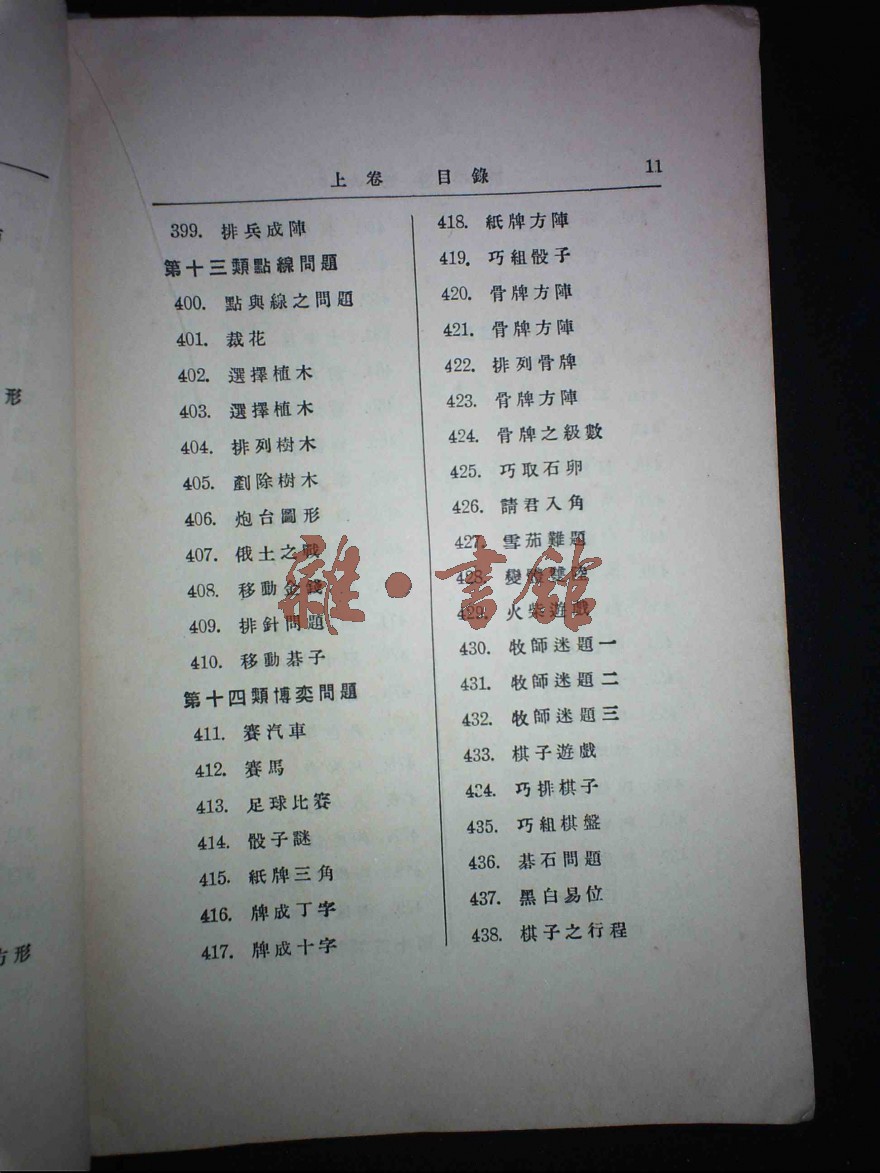 上卷 目錄 11
399. 排兵成陣
第十三類點線問題
400. 點與線之問題
401. 裁花
402. 選擇植木
403. 選擇植木
404. 排列樹木
405. 剷除樹木
406. 炮台圖形
407. 俄土之戰
408. 移動金錢
409. 排針問題
410. 移動碁子
第十四類博奕問題
411. 賽汽車
412. 賽馬
413. 足球比賽
414. 骰子謎
415. 紙牌三角
416. 牌成丁字
417. 牌成十字
418. 紙牌方陣
419. 巧組骰子
420. 骨牌方陣
421. 骨牌方陣
422. 排列骨牌
423. 骨牌方陣
424. 骨牌之級數
425. 巧取石卵
426. 請君入角
427. 雪茄難題
428. 變體雙陸
429. 火柴遊戲
430. 牧師迷題一
431. 牧師迷題二
432. 牧師迷題三
433. 棋子遊戲
424. 巧排棋子
435. 巧組棋盤
436. 碁石問題
437. 黑白易位
438. 棋子之行程
雜·書館
形
方形